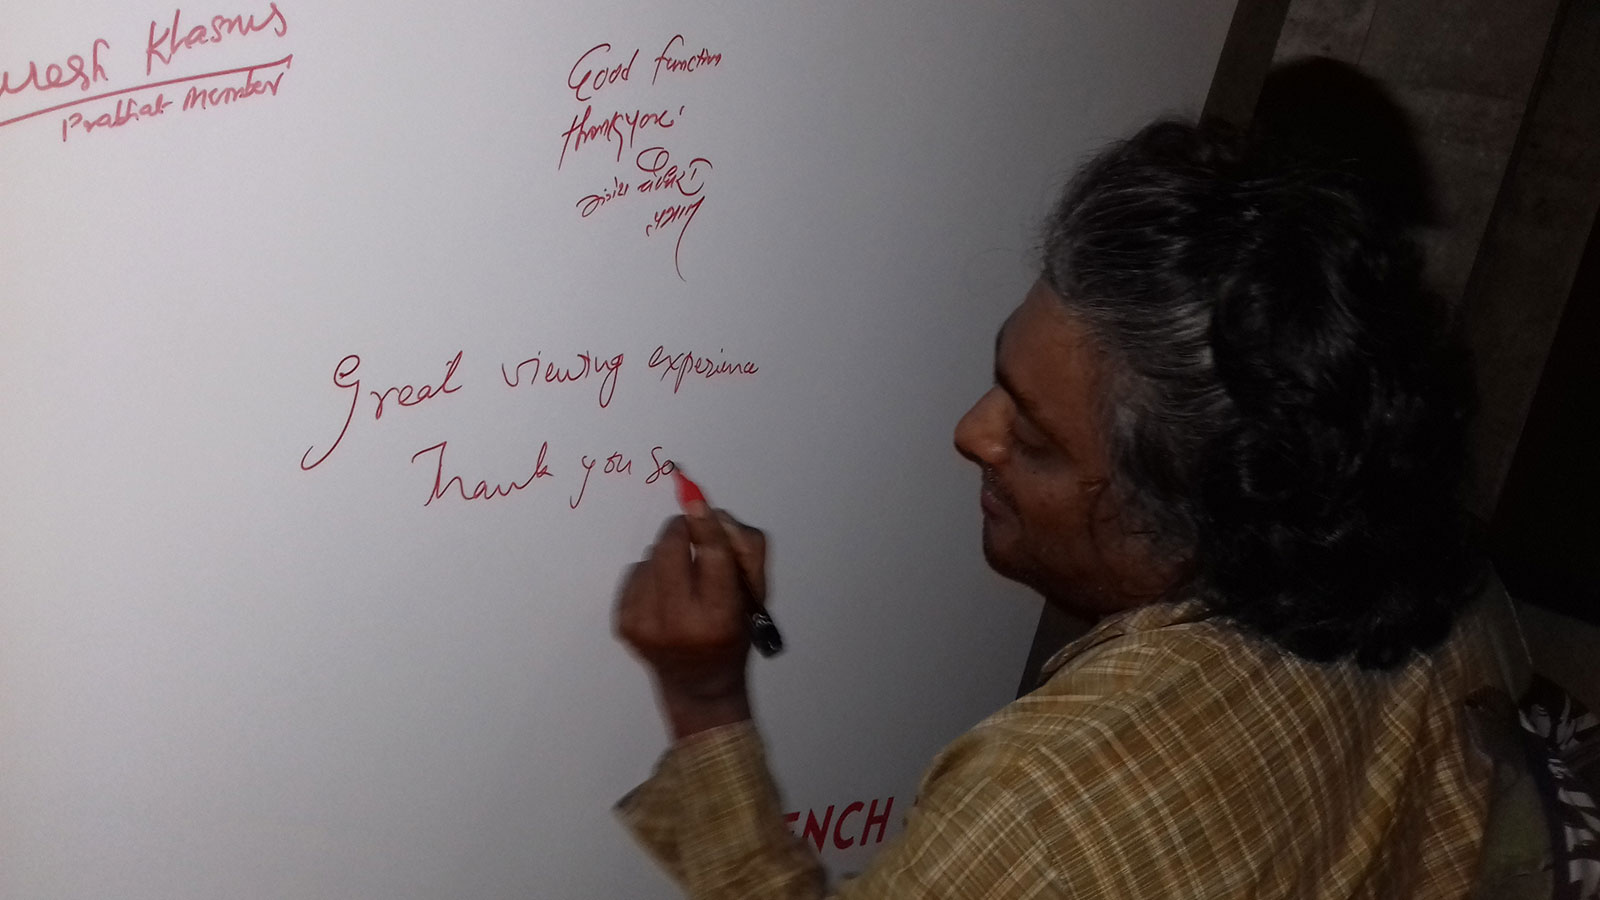 Khasnis
Prabhat Member
Good function
thankyou!
Great viewing experience
Thank you so
ENCH